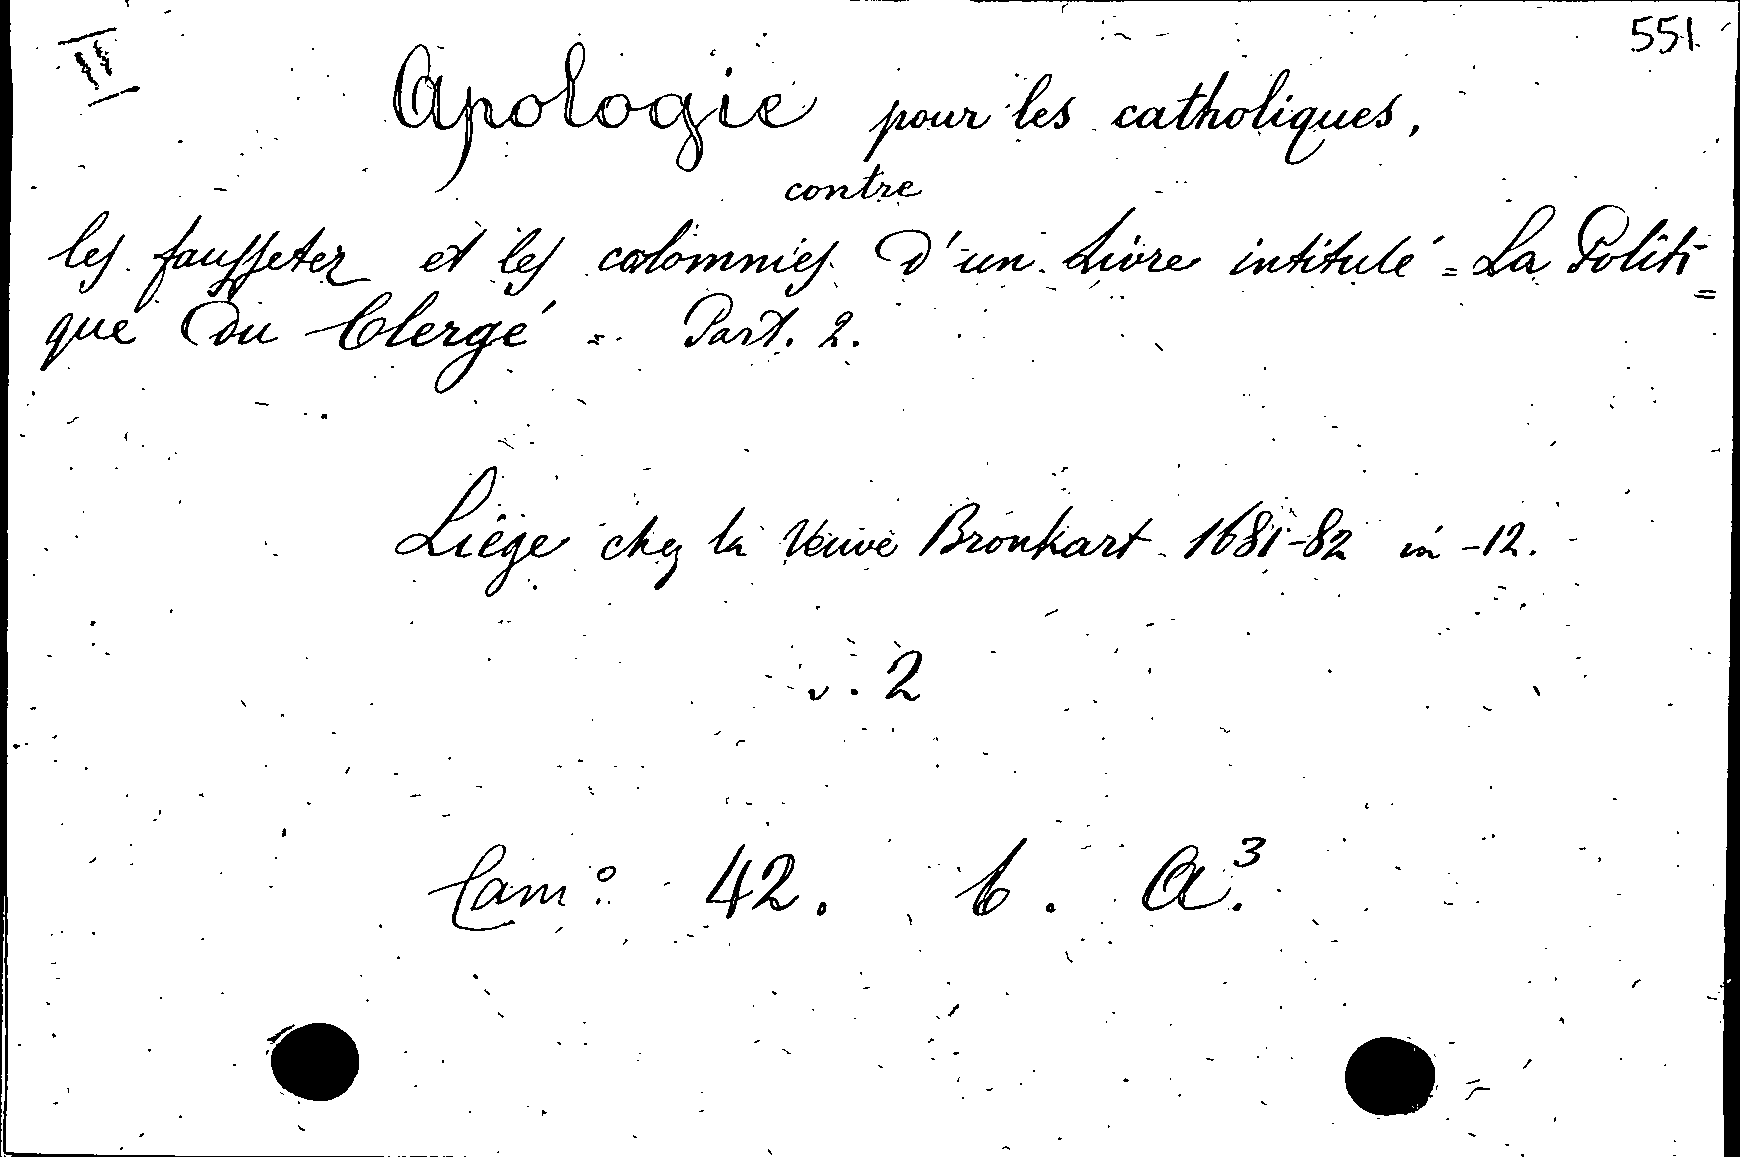 II
551
Apologie pour les catholiques,
contre
les faussetez et les calomnies d'un Livre intitulé = La Politi=
que du Clergé =. Part. 2.
Liége chez la Veuve Bronkart 1681-82 in-12.
v. 2
Cam.º 42. b. A.³